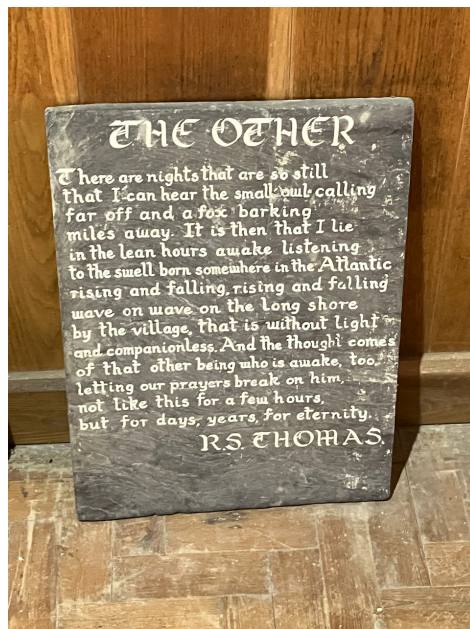 THE OTHER
There are nights that are so still
that I can hear the small owl calling
far off and a fox barking
miles away. It is then that I lie
in the lean hours awake listening
to the swell born somewhere in the Atlantic
rising and falling, rising and falling
wave on wave on the long shore
by the village, that is without light
and companionless. And the thought comes
of that other being who is awake, too,
letting our prayers break on him,
not like this for a few hours,
but for days, years, for eternity.
R.S. THOMAS.